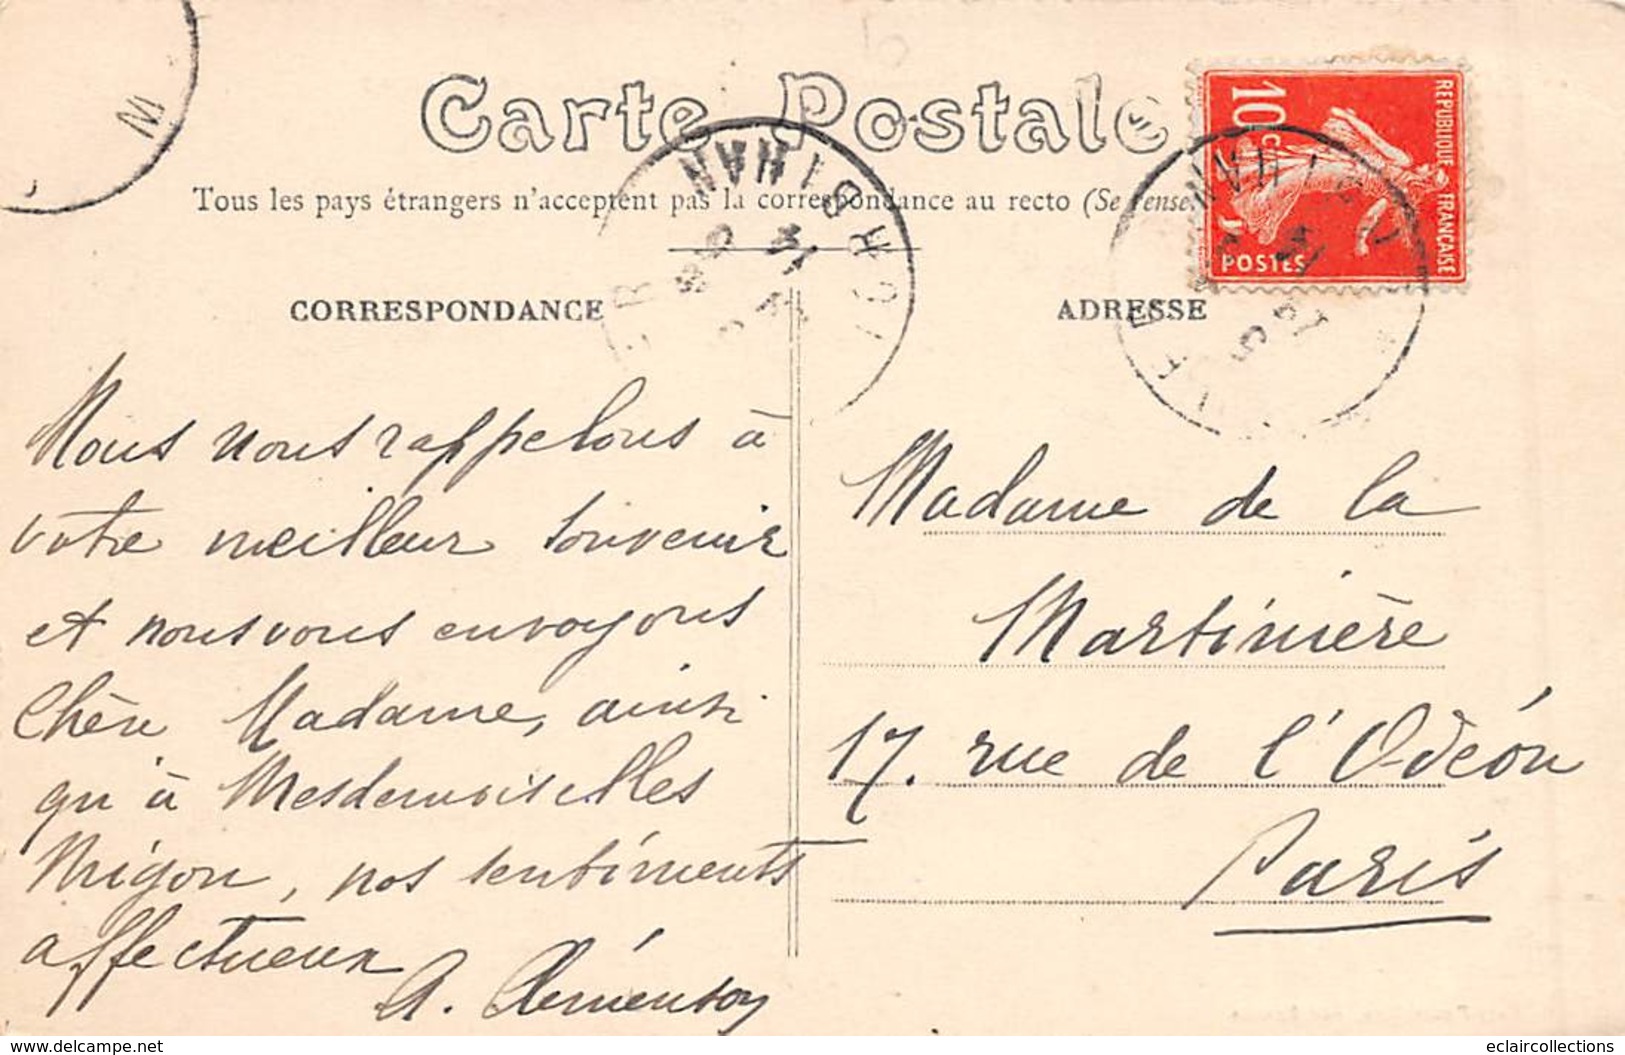 Carte Postale
Tous les pays étrangers n'acceptent pas la correspondance au recto (Se rense
CORRESPONDANCE
ADRESSE
REPUBLIQUE FRANÇAISE
10 c
POSTES
Nous nous rappelons à
votre meilleur souvenir
et nous vous envoyons
Chère Madame, ainsi
qu'à Mesdemoiselles
Migon, nos sentiments
affectueux
A. Clémensoy
Madame de la
Martinière
17. rue de l'Odéon
Paris
www.delcampe.net
eclaircollections